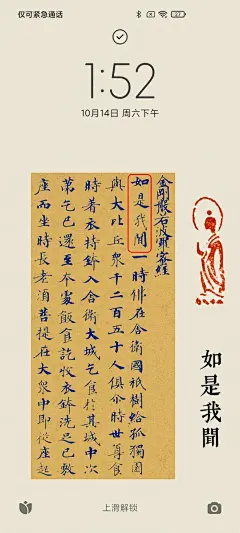 仅可紧急通话
27
1:52
10月14日 周六下午
金剛般若波羅蜜經
如是我聞一時佛在舍衛國祇樹給孤獨園
與大比丘眾千二百五十人俱尒時世尊食
時著衣持鉢入舍衛大城乞食於其城中次
第乞已還至本處飯食訖收衣鉢洗足已敷
座而坐時長老須菩提在大眾中即從座起
如是我聞
上滑解锁